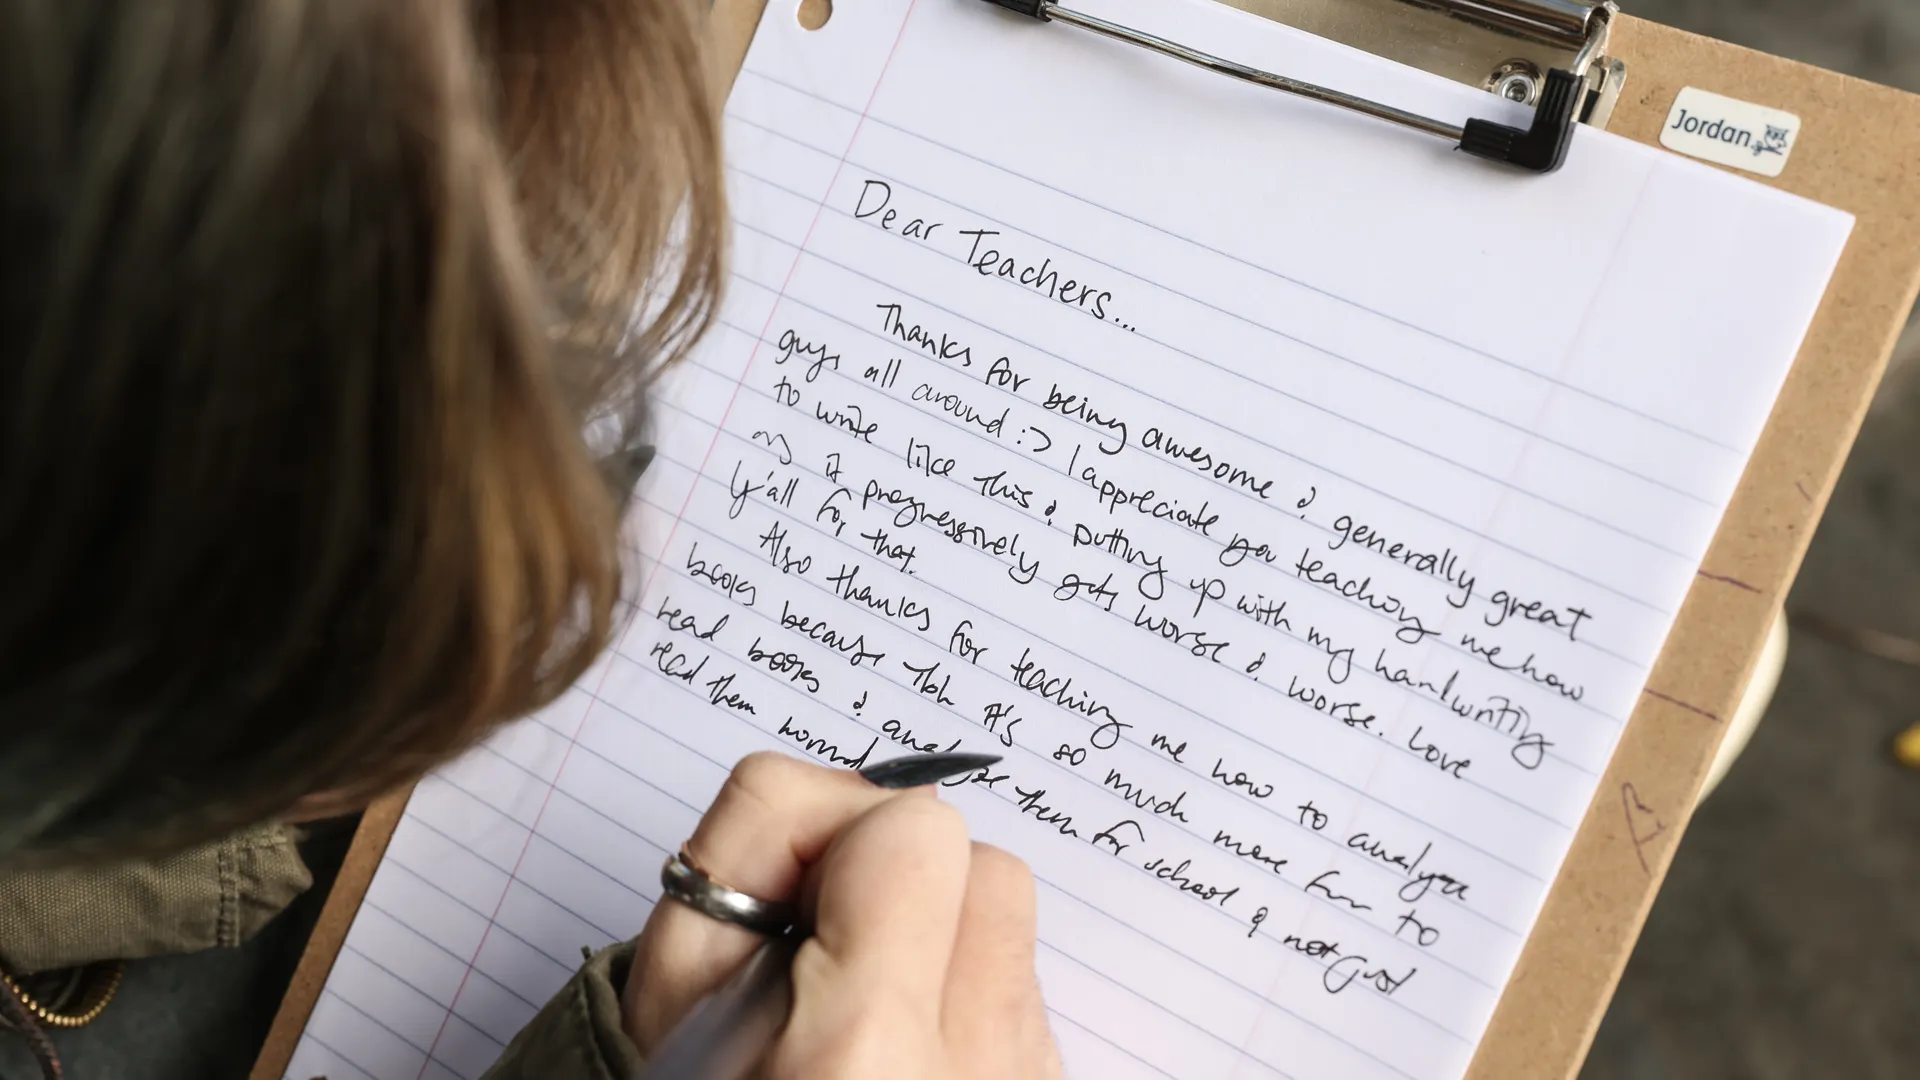 Jordan
Dear Teachers...
Thanks for being awesome & generally great
guys all around :) I appreciate you teaching me how
to write like this & putting up with my handwriting
as it progressively gets worse & worse. Love
y'all for that.
Also thanks for teaching me how to analyze
books because tbh it's so much more fun to
read books & analyze them for school & not just
read them normal